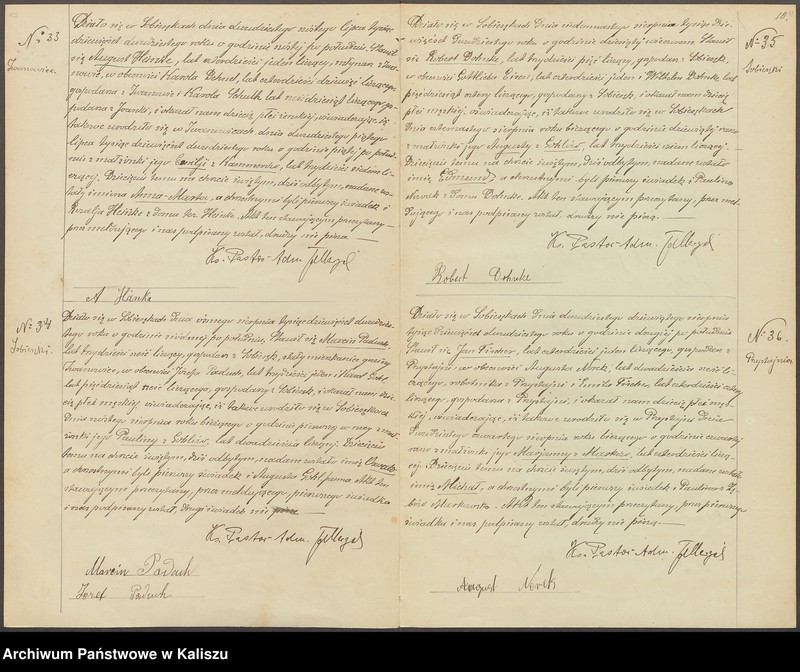 Nº 33
Iwanowice.
Działo się w Sobiesękach dnia dwudziestego szóstego lipca tysiąc
dziewięćset dwudziestego roku o godzinie szóstej po południu. Stawił
się August Heinke, lat czterdzieści jeden liczący, młynarz z Iwa-
nowic, w obecności Karola Dehnel, lat czterdzieści dziewięć liczącego
gospodarza z Iwanowic i Karola Schulth lat liczącego gos-
podarza z i okazał nam dziecię płci żeńskiej, oświadczając, iż
takowe urodziło się w Iwanowicach dnia dwudziestego piątego
lipca tysiąc dziewięćset dwudziestego roku o godzinie piątej po połud-
niu z małżonki jego Emilji z lat trzydzieści siedem li-
czącej. Dziecięciu temu na chrzcie świętym, dziś odbytym, nadane zo-
stały imiona Anna-Marta, a chrzestnymi byli pierwszy świadek i
Rozalja Heinke z domu też Heinke. Akt ten stawającym przeczytany
przez meldującego i nas podpisany został, drudzy nie piszą.
Ks. Pastor-Adm.
A Hänke
Nº 34
Sobiesęki.
Działo się w Sobiesękach dnia ósmego sierpnia tysiąc dziewięćset dwudzies-
tego roku o godzinie siódmej po południu. Stawił się Marcin Paduch,
lat trzydzieści sześć liczący, gospodarz z Sobiesęk, stały mieszkaniec gminy
Iwanowice, w obecności Józefa Paduch, lat trzydzieści jeden i
lat pięćdziesiąt sześć liczącego, gospodarzy z Sobiesęk, i okazał nam dzie-
cię płci męskiej oświadczając, iż takowe urodziło się w Sobiesękach
dnia szóstego sierpnia roku bieżącego o godzinie pierwszej w nocy z mał-
żonki jego Pauliny z lat dwadzieścia liczącej. Dziecięciu
temu na chrzcie świętym, dziś odbytym, nadane zostało imię Oswald
a chrzestnymi byli pierwszy świadek i Augusta panna. Akt ten
stawającym przeczytany, przez meldującego, pierwszego świadka
i nas podpisany został, drugi świadek nie pisze
Ks. Pastor-Adm.
Marcin Paduch
Jozef Paduch
10.
Nº 35
Sobiesęki
Działo się w Sobiesękach dnia jedenastego sierpnia tysiąc dzie-
więćset dwudziestego roku o godzinie dziewiątej wieczorem. Stawił
się Robert Dohnke, lat trzydzieści pięć liczący, gospodarz z Sobiesęk,
w obecności Gottlieba lat czterdzieści jeden i Wilhelma Dohnke lat
pięćdziesiąt cztery liczącego, gospodarzy z Sobiesęk, i okazał nam dziecię
płci męskiej oświadczając, iż takowe urodziło się w Sobiesękach
dnia ósmego sierpnia roku bieżącego o godzinie dziewiątej rano
z małżonki jego Augusty z lat trzydzieści osiem liczącej.
Dziecięciu temu na chrzcie świętym, dziś odbytym, nadane zostało
imię Edmund, a chrzestnymi byli pierwszy świadek i Paulina
Nowak z domu Dohnke. Akt ten stawającym przeczytany, przez mel-
dującego i nas podpisany został, drudzy nie piszą.
Ks. Pastor-Adm.
Robert Dohnke
Nº 36.
Przystajnia
Działo się w Sobiesękach dnia dwudziestego dziewiątego sierpnia
tysiąc dziewięćset dwudziestego roku o godzinie drugiej po południu
Stawił się Jan Fischer, lat czterdzieści jeden liczący, gospodarz z
Przystajni w obecności Augusta Norek, lat dwadzieścia sześć li-
czącego, robotnika z Przystajni i Emila Fischer, lat czterdzieści cztery
liczącego, gospodarza z Przystajni, i okazał nam dziecię płci męs-
kiej, oświadczając, iż takowe urodziło się w Przystajni dnia
dwudziestego czwartego sierpnia roku bieżącego o godzinie czwartej
rano z małżonki jego Marjanny z lat czterdzieści liczą-
cej. Dziecięciu temu na chrzcie świętym, dziś odbytym, nadane zostało
imię Michał, a chrzestnymi byli pierwszy świadek i Paulina z
Akt ten stawającym przeczytany, przez pierwszego
świadka i nas podpisany został, drudzy nie piszą.
Ks. Pastor-Adm.
August Norek
Archiwum Państwowe w Kaliszu